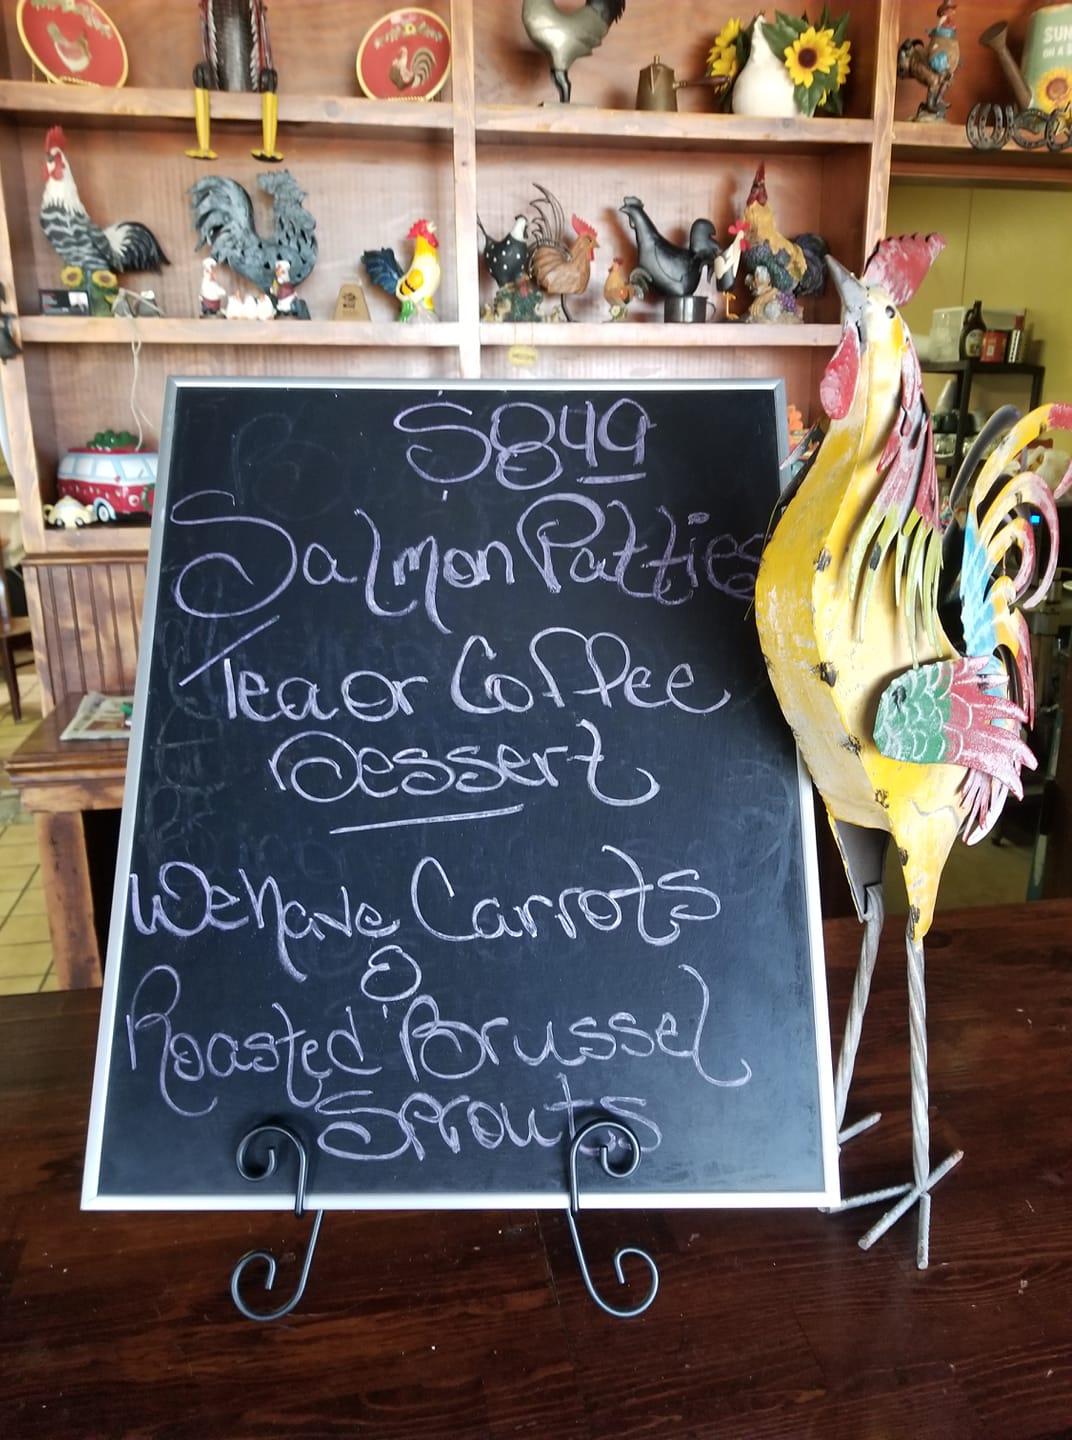 $8 49
Salmon Patties
Tea or Coffee
Dessert
We have Carrots
&
Roasted Brussel
Sprouts
SUN